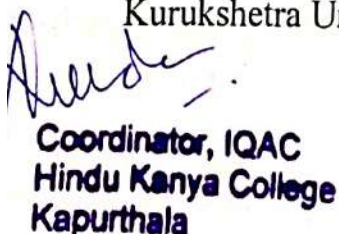 Kurukshetra Un
Coordinator, IQAC
Hindu Kanya College
Kapurthala